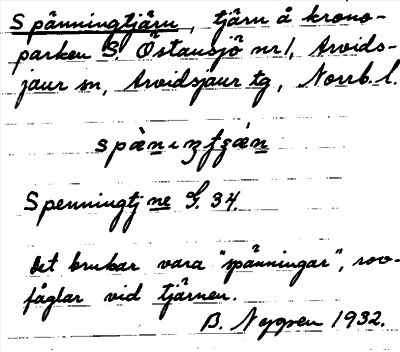 Spänningtjärn, tjärn å krono-
parken S. Östansjö nr 1, Arvids-
jaur sn, Arvidsjaur tg, Norrb. l.
Spenningtj ne G. 34.
Det brukar vara "spänningar", rov-
fåglar vid tjärnen.
B. Nygren 1932.